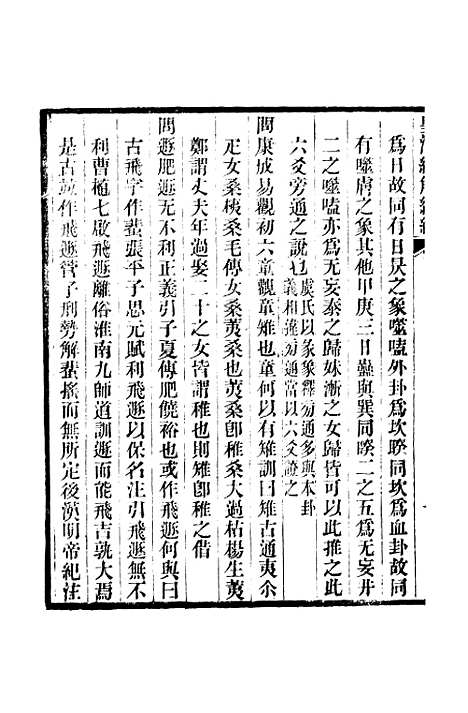 為日故同有日昃之象噬嗑外卦為坎睽同坎為血卦故同
有噬膚之象其他甲庚三日蠱與巽同睽二之五為无妄井
二之噬嗑亦為无妄泰之歸妹漸之女歸皆可以此推之此
六爻旁通之說也虞氏以彖象釋旁通多與本卦
義相違旁通當以六爻證之
問康成易觀初六童觀童雉也童何以有雉訓曰雉古通夷尒
疋女桑桋桑毛傳女桑荑桑也荑桑卽稚桑大過枯楊生荑
鄭謂丈夫年過娶二十之女皆謂稚也則雉卽稚之借
問遯肥遯无不利正義引子夏傳肥饒裕也或作飛遯何與曰
古飛字作蜚張平子思元賦利飛遯以保名注引飛遯無不
利曹植七啟飛遯離俗淮南九師道訓遯而能飛吉孰大焉
是古蓋作飛遯管子刑勢解蜚搖而無所定後漢明帝紀注